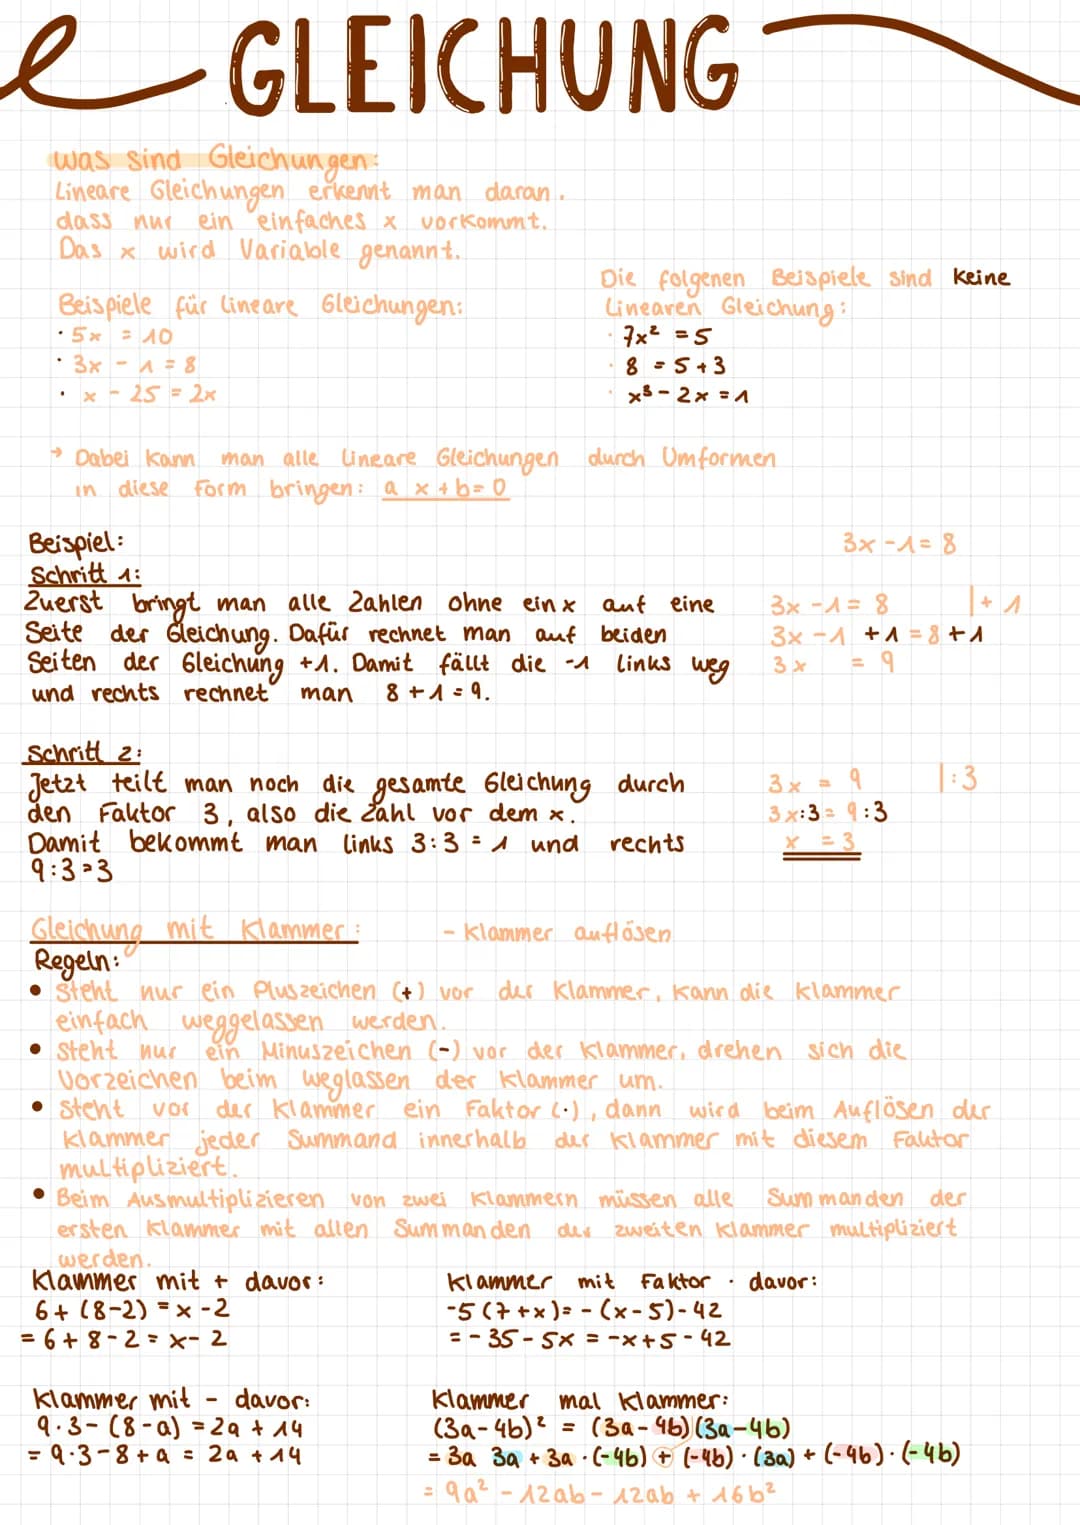 GLEICHUNG
Was sind Gleichungen:
Lineare Gleichungen erkennt man daran.
dass nur ein einfaches x vorkommt.
Das x wird Variable genannt.
Beispiele für lineare Gleichungen:
· 5x = 10
· 3x - 1 = 8
· x - 25 = 2x
Die folgenen Beispiele sind keine
Linearen Gleichung:
· 7x² = 5
· 8 = 5 + 3
· x³ - 2x = 1
→ Dabei kann man alle Lineare Gleichungen durch Umformen
in diese Form bringen: a x + b = 0
Beispiel:
3x - 1 = 8
Schritt 1:
Zuerst bringt man alle Zahlen ohne ein x auf eine
Seite der Gleichung. Dafür rechnet man auf beiden
Seiten der Gleichung +1. Damit fällt die -1 links weg
und rechts rechnet man 8 + 1 = 9.
3x - 1 = 8 | + 1
3x - 1 + 1 = 8 + 1
3x = 9
Schritt 2:
Jetzt teilt man noch die gesamte Gleichung durch
den Faktor 3, also die Zahl vor dem x.
Damit bekommt man links 3:3 = 1 und rechts
9:3=3
3x = 9 | :3
3x:3 = 9:3
x = 3
Gleichung mit Klammer: - Klammer auflösen
Regeln:
• Steht nur ein Pluszeichen (+) vor der Klammer, kann die Klammer
einfach weggelassen werden.
• Steht nur ein Minuszeichen (-) vor der Klammer, drehen sich die
Vorzeichen beim weglassen der Klammer um.
• Steht vor der Klammer ein Faktor (·), dann wird beim Auflösen der
Klammer jeder Summand innerhalb der Klammer mit diesem Faktor
multipliziert.
• Beim Ausmultiplizieren von zwei Klammern müssen alle Summanden der
ersten Klammer mit allen Summanden der zweiten Klammer multipliziert
werden.
Klammer mit + davor:
6 + (8-2) = x - 2
= 6 + 8 - 2 = x - 2
Klammer mit Faktor · davor:
-5 (7 + x) = - (x - 5) - 42
= - 35 - 5x = -x + 5 - 42
Klammer mit - davor:
9 · 3 - (8 - a) = 2a + 14
= 9 · 3 - 8 + a = 2a + 14
Klammer mal Klammer:
(3a - 4b)² = (3a - 4b)(3a - 4b)
= 3a 3a + 3a · (-4b) + (-4b) · (3a) + (-4b) · (-4b)
= 9a² - 12ab - 12ab + 16b²